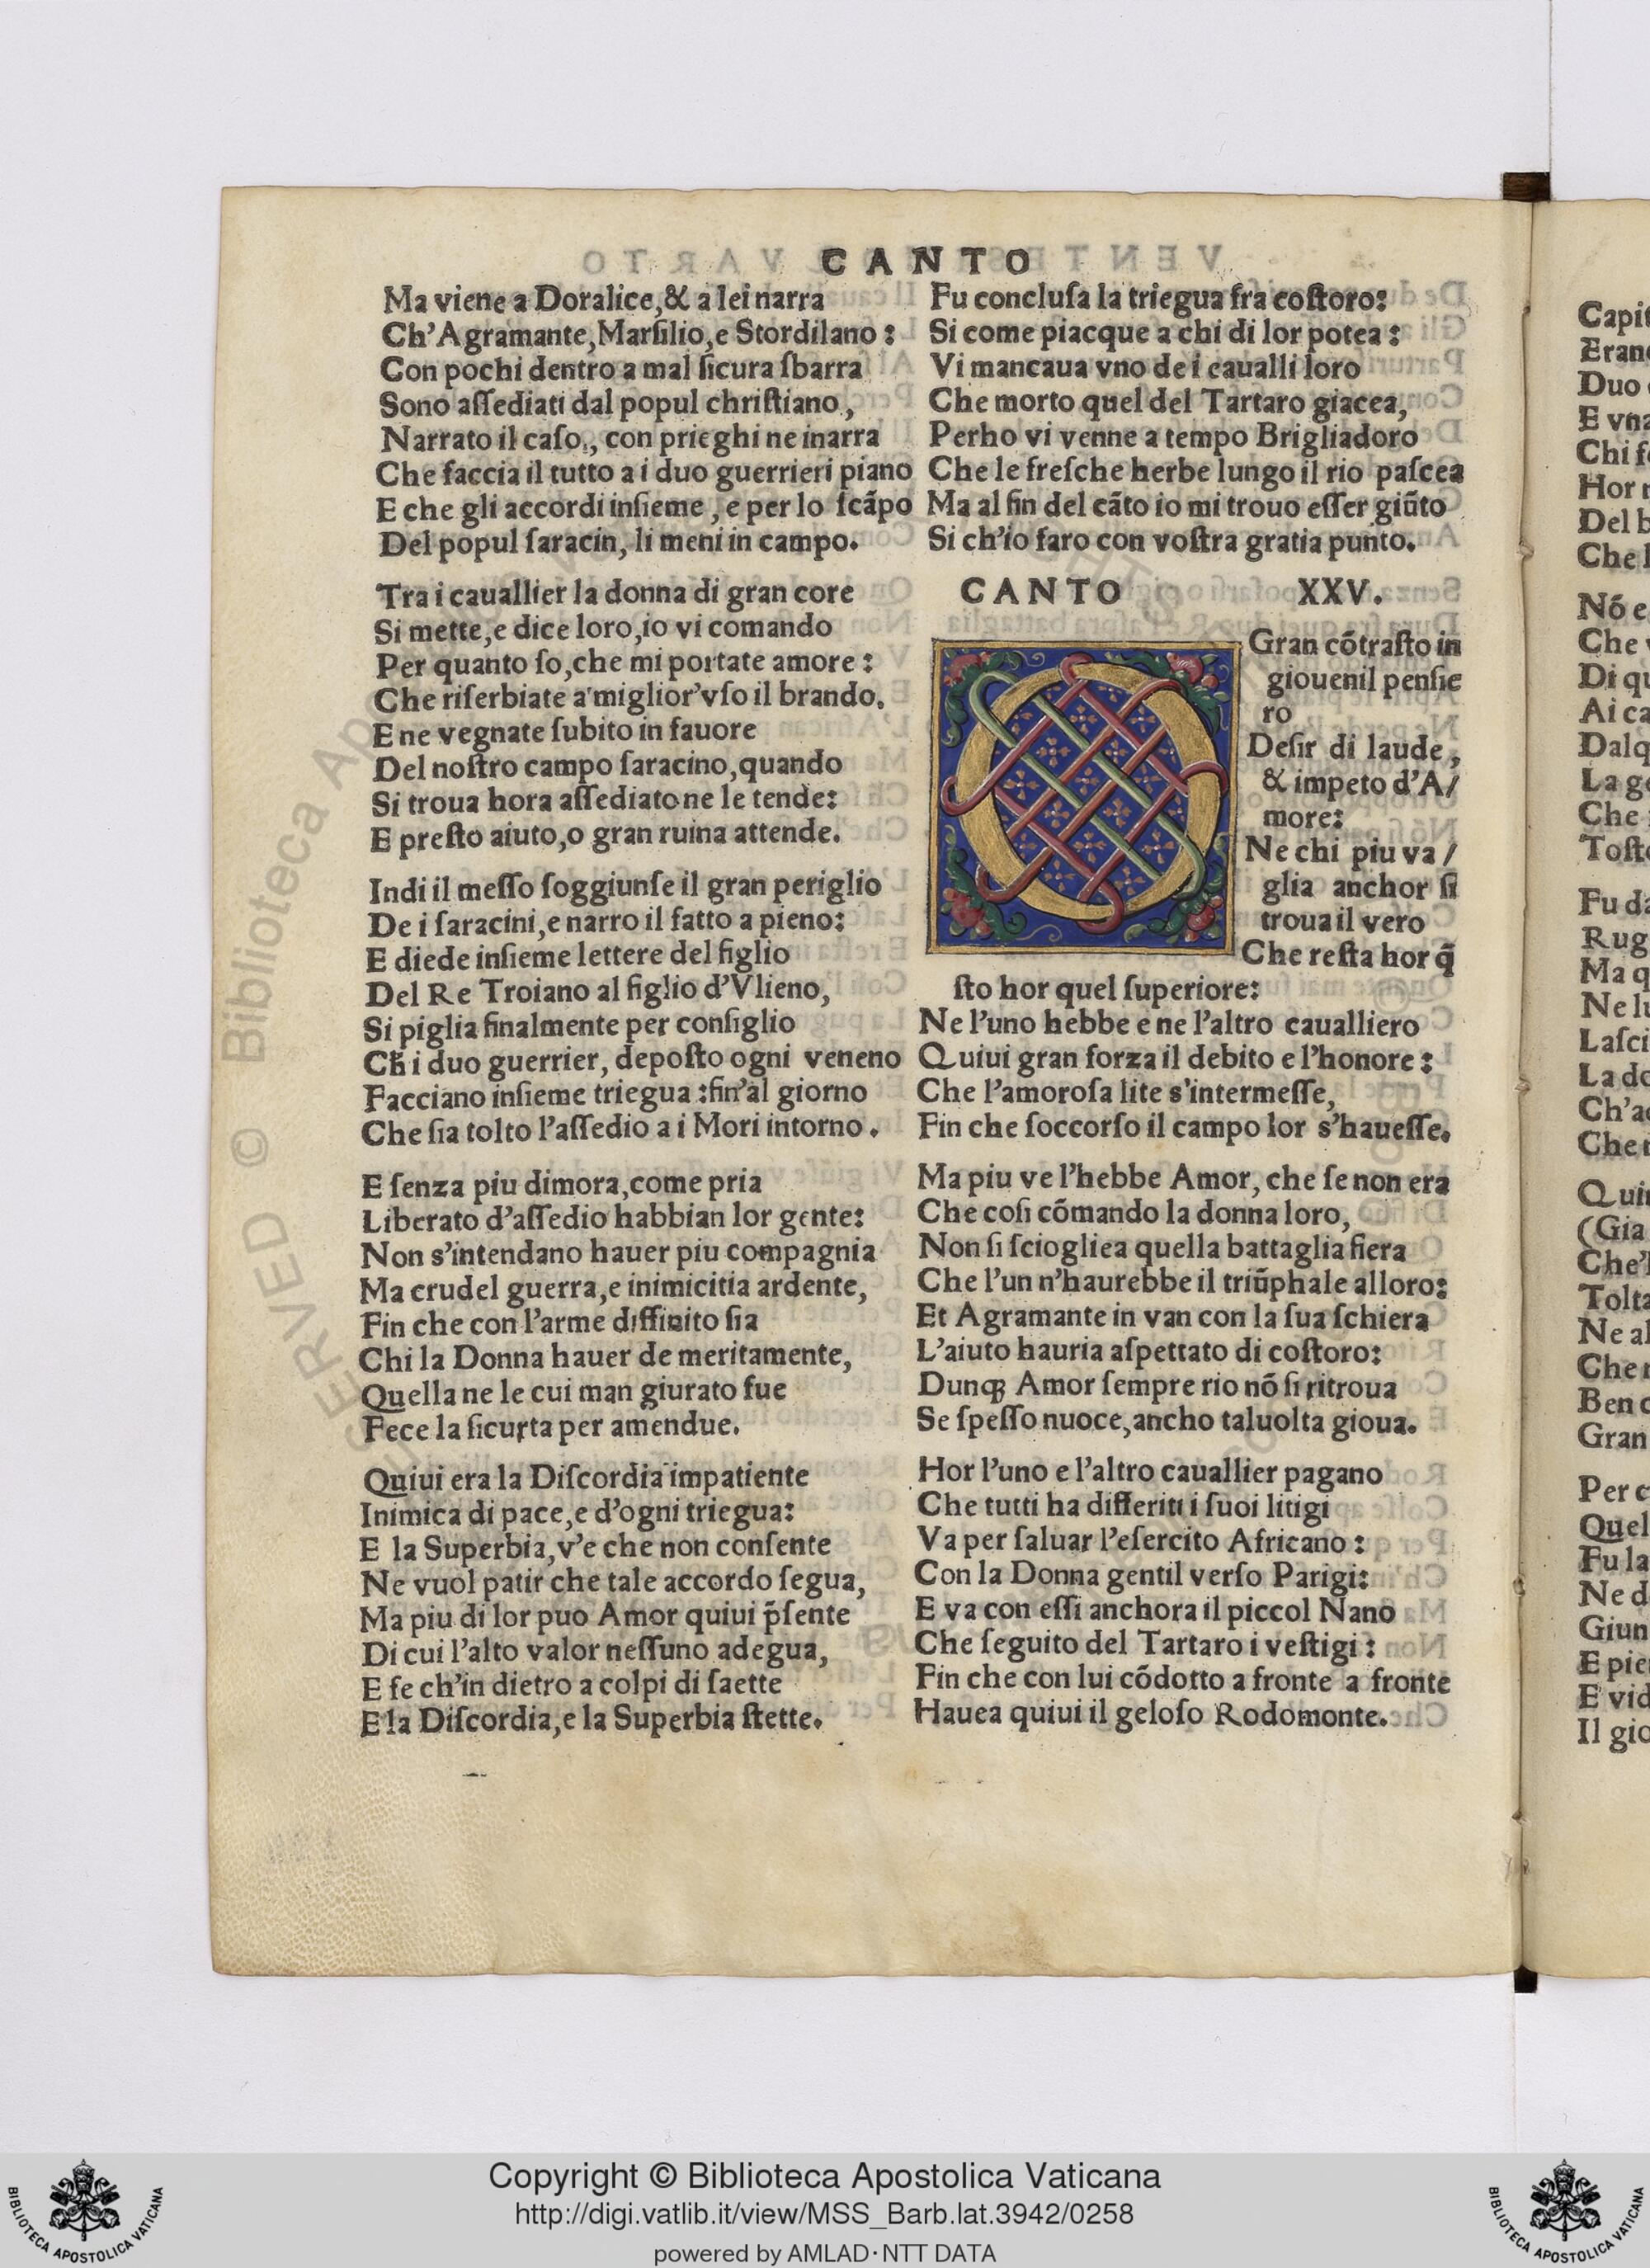 CANTO
Ma viene a Doralice,& a lei narra
Ch'Agramante,Marſilio,e Stordilano:
Con pochi dentro a mal ſicura ſbarra
Sono aſſediati dal popul chriſtiano,
Narrato il caſo., con prieghi ne inarra
Che faccia il tutto a i duo guerrieri piano
E che gli accordi inſieme, e per lo ſcãpo
Del popul ſaracin, li meni in campo.
Tra i cauallier la donna di gran core
Si mette,e dice loro,io vi comando
Per quanto ſo,che mi portate amore:
Che riſerbiate a miglior'vſo il brando.
E ne vegnate ſubito in fauore
Del noſtro campo ſaracino,quando
Si troua hora aſſediato ne le tende:
E preſto aiuto,o gran ruina attende.
Indi il meſſo ſoggiunſe il gran periglio
De i ſaracini,e narro il fatto a pieno:
E diede inſieme lettere del figlio
Del Re Troiano al figlio d'Vlieno,
Si piglia finalmente per conſiglio
Cħ i duo guerrier, depoſto ogni veneno
Facciano inſieme triegua:fin'al giorno
Che ſia tolto l'aſſedio a i Mori intorno.
E ſenza piu dimora,come pria
Liberato d'aſſedio habbian lor gente:
Non s'intendano hauer piu compagnia
Ma crudel guerra,e inimicitia ardente,
Fin che con l'arme diffinito ſia
Chi la Donna hauer de meritamente,
Quella ne le cui man giurato fue
Fece la ſicurta per amendue.
Quiui era la Diſcordia impatiente
Inimica di pace,e d'ogni triegua:
E la Superbia,v'e che non conſente
Ne vuol patir che tale accordo ſegua,
Ma piu di lor puo Amor quiui p̃ſente
Di cui l'alto valor neſſuno adegua,
E fe ch'in dietro a colpi di ſaette
E la Diſcordia,e la Superbia ſtette.
Fu concluſa la triegua fra coſtoro:
Si come piacque a chi di lor potea:
Vi mancaua vno de i caualli loro
Che morto quel del Tartaro giacea,
Perho vi venne a tempo Brigliadoro
Che le freſche herbe lungo il rio paſcea
Ma al fin del cãto io mi trouo eſſer giũto
Si ch'io faro con voſtra gratia punto.
CANTO XXV.
O Gran cõtraſto in
giouenil penſie
ro
Deſir di laude,
& impeto d'A/
more:
Ne chi piu va/
glia anchor ſi
troua il vero
Che reſta hor q̃
ſto hor quel ſuperiore:
Ne l'uno hebbe e ne l'altro caualliero
Quiui gran forza il debito e l'honore:
Che l'amoroſa lite s'intermeſſe,
Fin che ſoccorſo il campo lor s'haueſſe.
Ma piu ve l'hebbe Amor, che ſe non era
Che coſi cõmando la donna loro,
Non ſi ſciogliea quella battaglia fiera
Che l'un n'haurebbe il triũphale alloro:
Et Agramante in van con la ſua ſchiera
L'aiuto hauria aſpettato di coſtoro:
Dunq; Amor ſempre rio nõ ſi ritroua
Se ſpeſſo nuoce,ancho taluolta gioua.
Hor l'uno e l'altro cauallier pagano
Che tutti ha differiti i ſuoi litigi
Va per ſaluar l'eſercito Africano:
Con la Donna gentil verſo Parigi:
E va con eſſi anchora il piccol Nano
Che ſeguito del Tartaro i veſtigi:
Fin che con lui cõdotto a fronte a fronte
Hauea quiui il geloſo Rodomonte.
Copyright © Biblioteca Apostolica Vaticana
http://digi.vatlib.it/view/MSS_Barb.lat.3942/0258
powered by AMLAD·NTT DATA
BIBLIOTECA APOSTOLICA VATICANA
BIBLIOTECA APOSTOLICA VATICANA